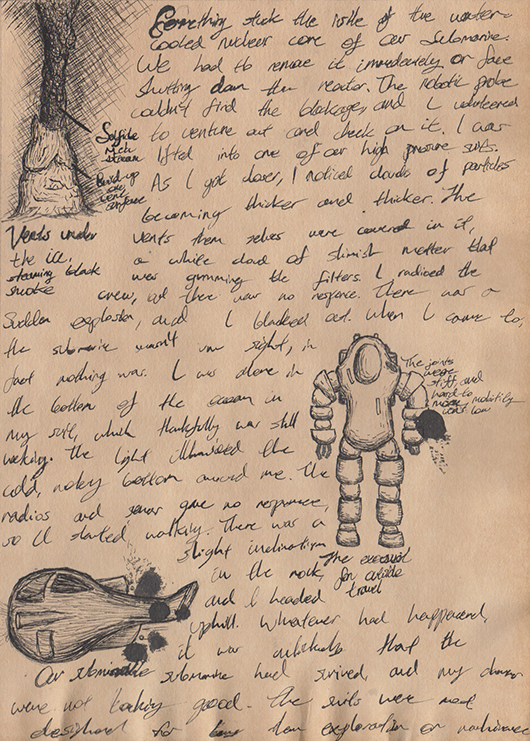 Something stuck the inlte of the water-
cooled nuclear core of our submarine.
We had to remove it immediately or face
shutting down the reactor. The robotic probe
couldn't find the blockage, and I volunteered
to venture out and check on it. I was
lifted into one of our high pressure suits.
As I got closer, I noticed clouds of particles
becoming thicker and thicker. The
vents them selves were covered in it,
a white cloud of slimish matter that
was gumming the filters. I radioed the
crew, but there was no responce. There was a
sudden explosion, and I blacked out. When I came to,
the submarine wasn't in sight, in
fact nothing was. I was alone in
the bottom of the ocean in
my suit, which thankfully was still
working. The light illuminated the
cold, rocky bottom around me. The
radios and sonar gave no responce,
so I started walking. There was a
slight inclination
in the rock,
and I headed
uphill. Whatever had happened,
it was that the
submarine had survived, and my chances
were not looking good. The suits were not
designed for long term exploration or
Sulfite
rich
stream
Build-up
on
vent
surface
Vents under
the ice,
steaming black
smoke
The joints
were
stiff, and
hard to
move, mobility
was low
The exosuit
for outside
travel
Our submarine